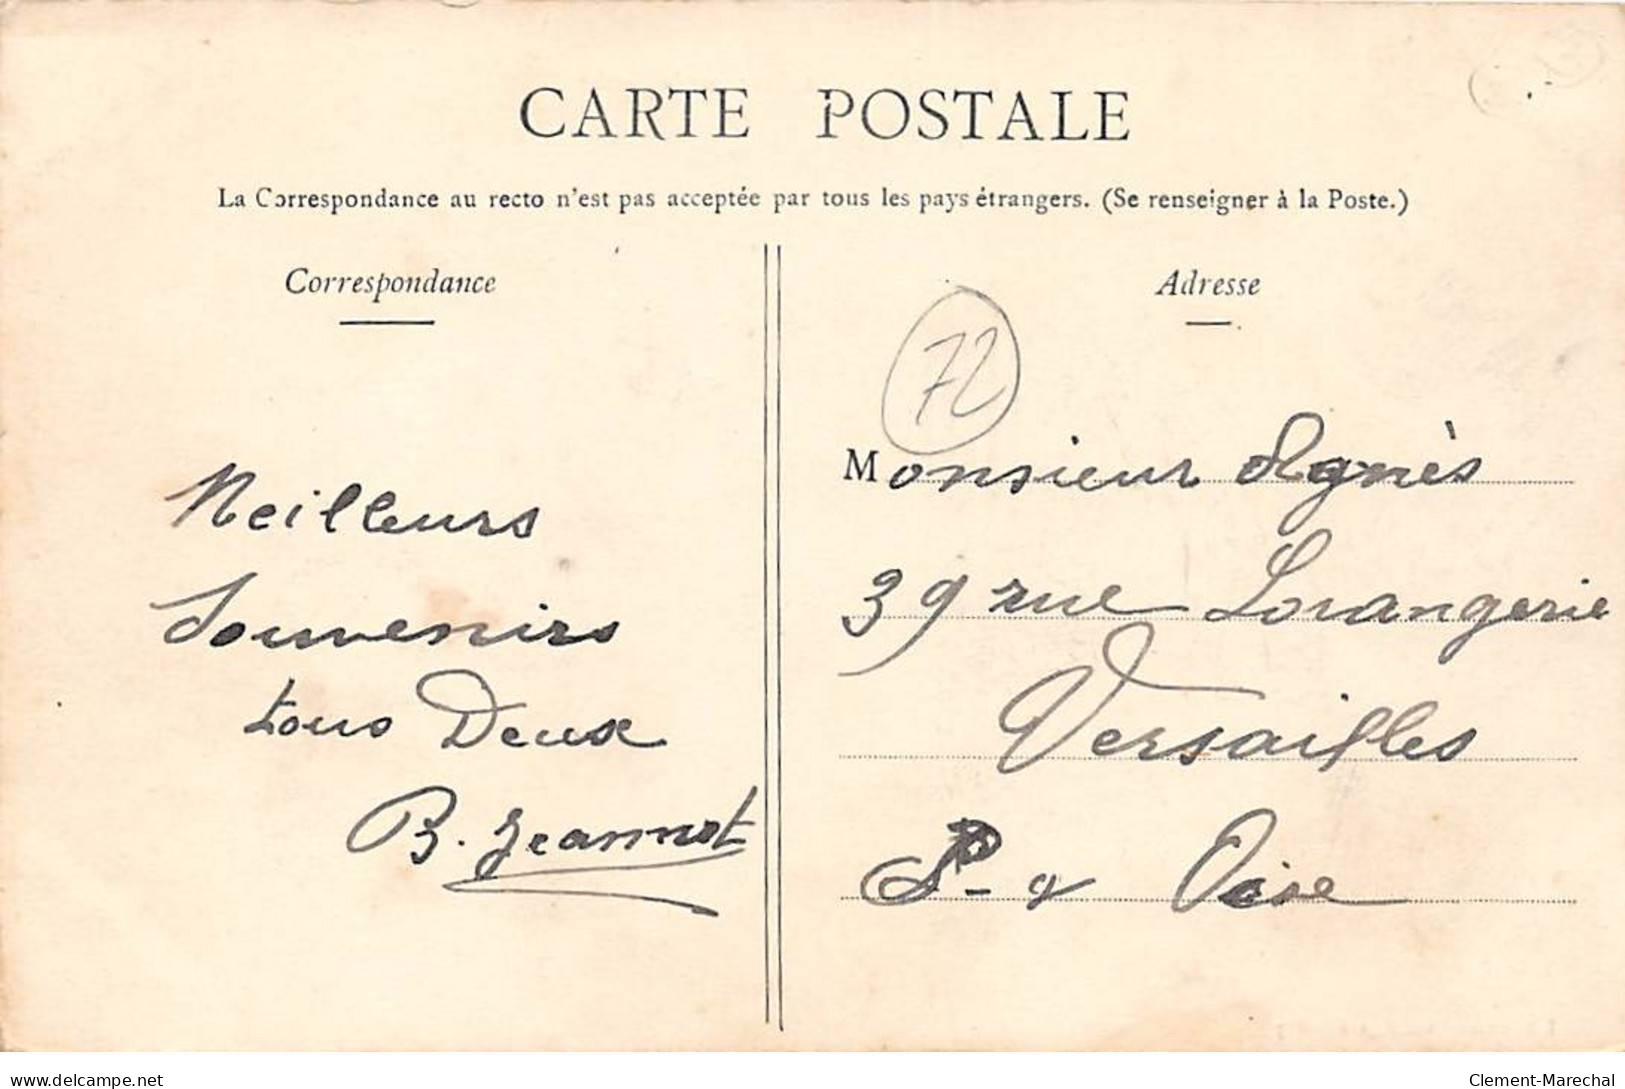 CARTE POSTALE
La Correspondance au recto n'est pas acceptée par tous les pays étrangers. (Se renseigner à la Poste.)
Correspondance
Meilleurs
Souvenirs
tous Deux
B. Jeannot
Adresse
72
Monsieur Agnès
39 rue Lorangerie
Versailles
S - & Oise
delcampe.net
Clement-Marechal